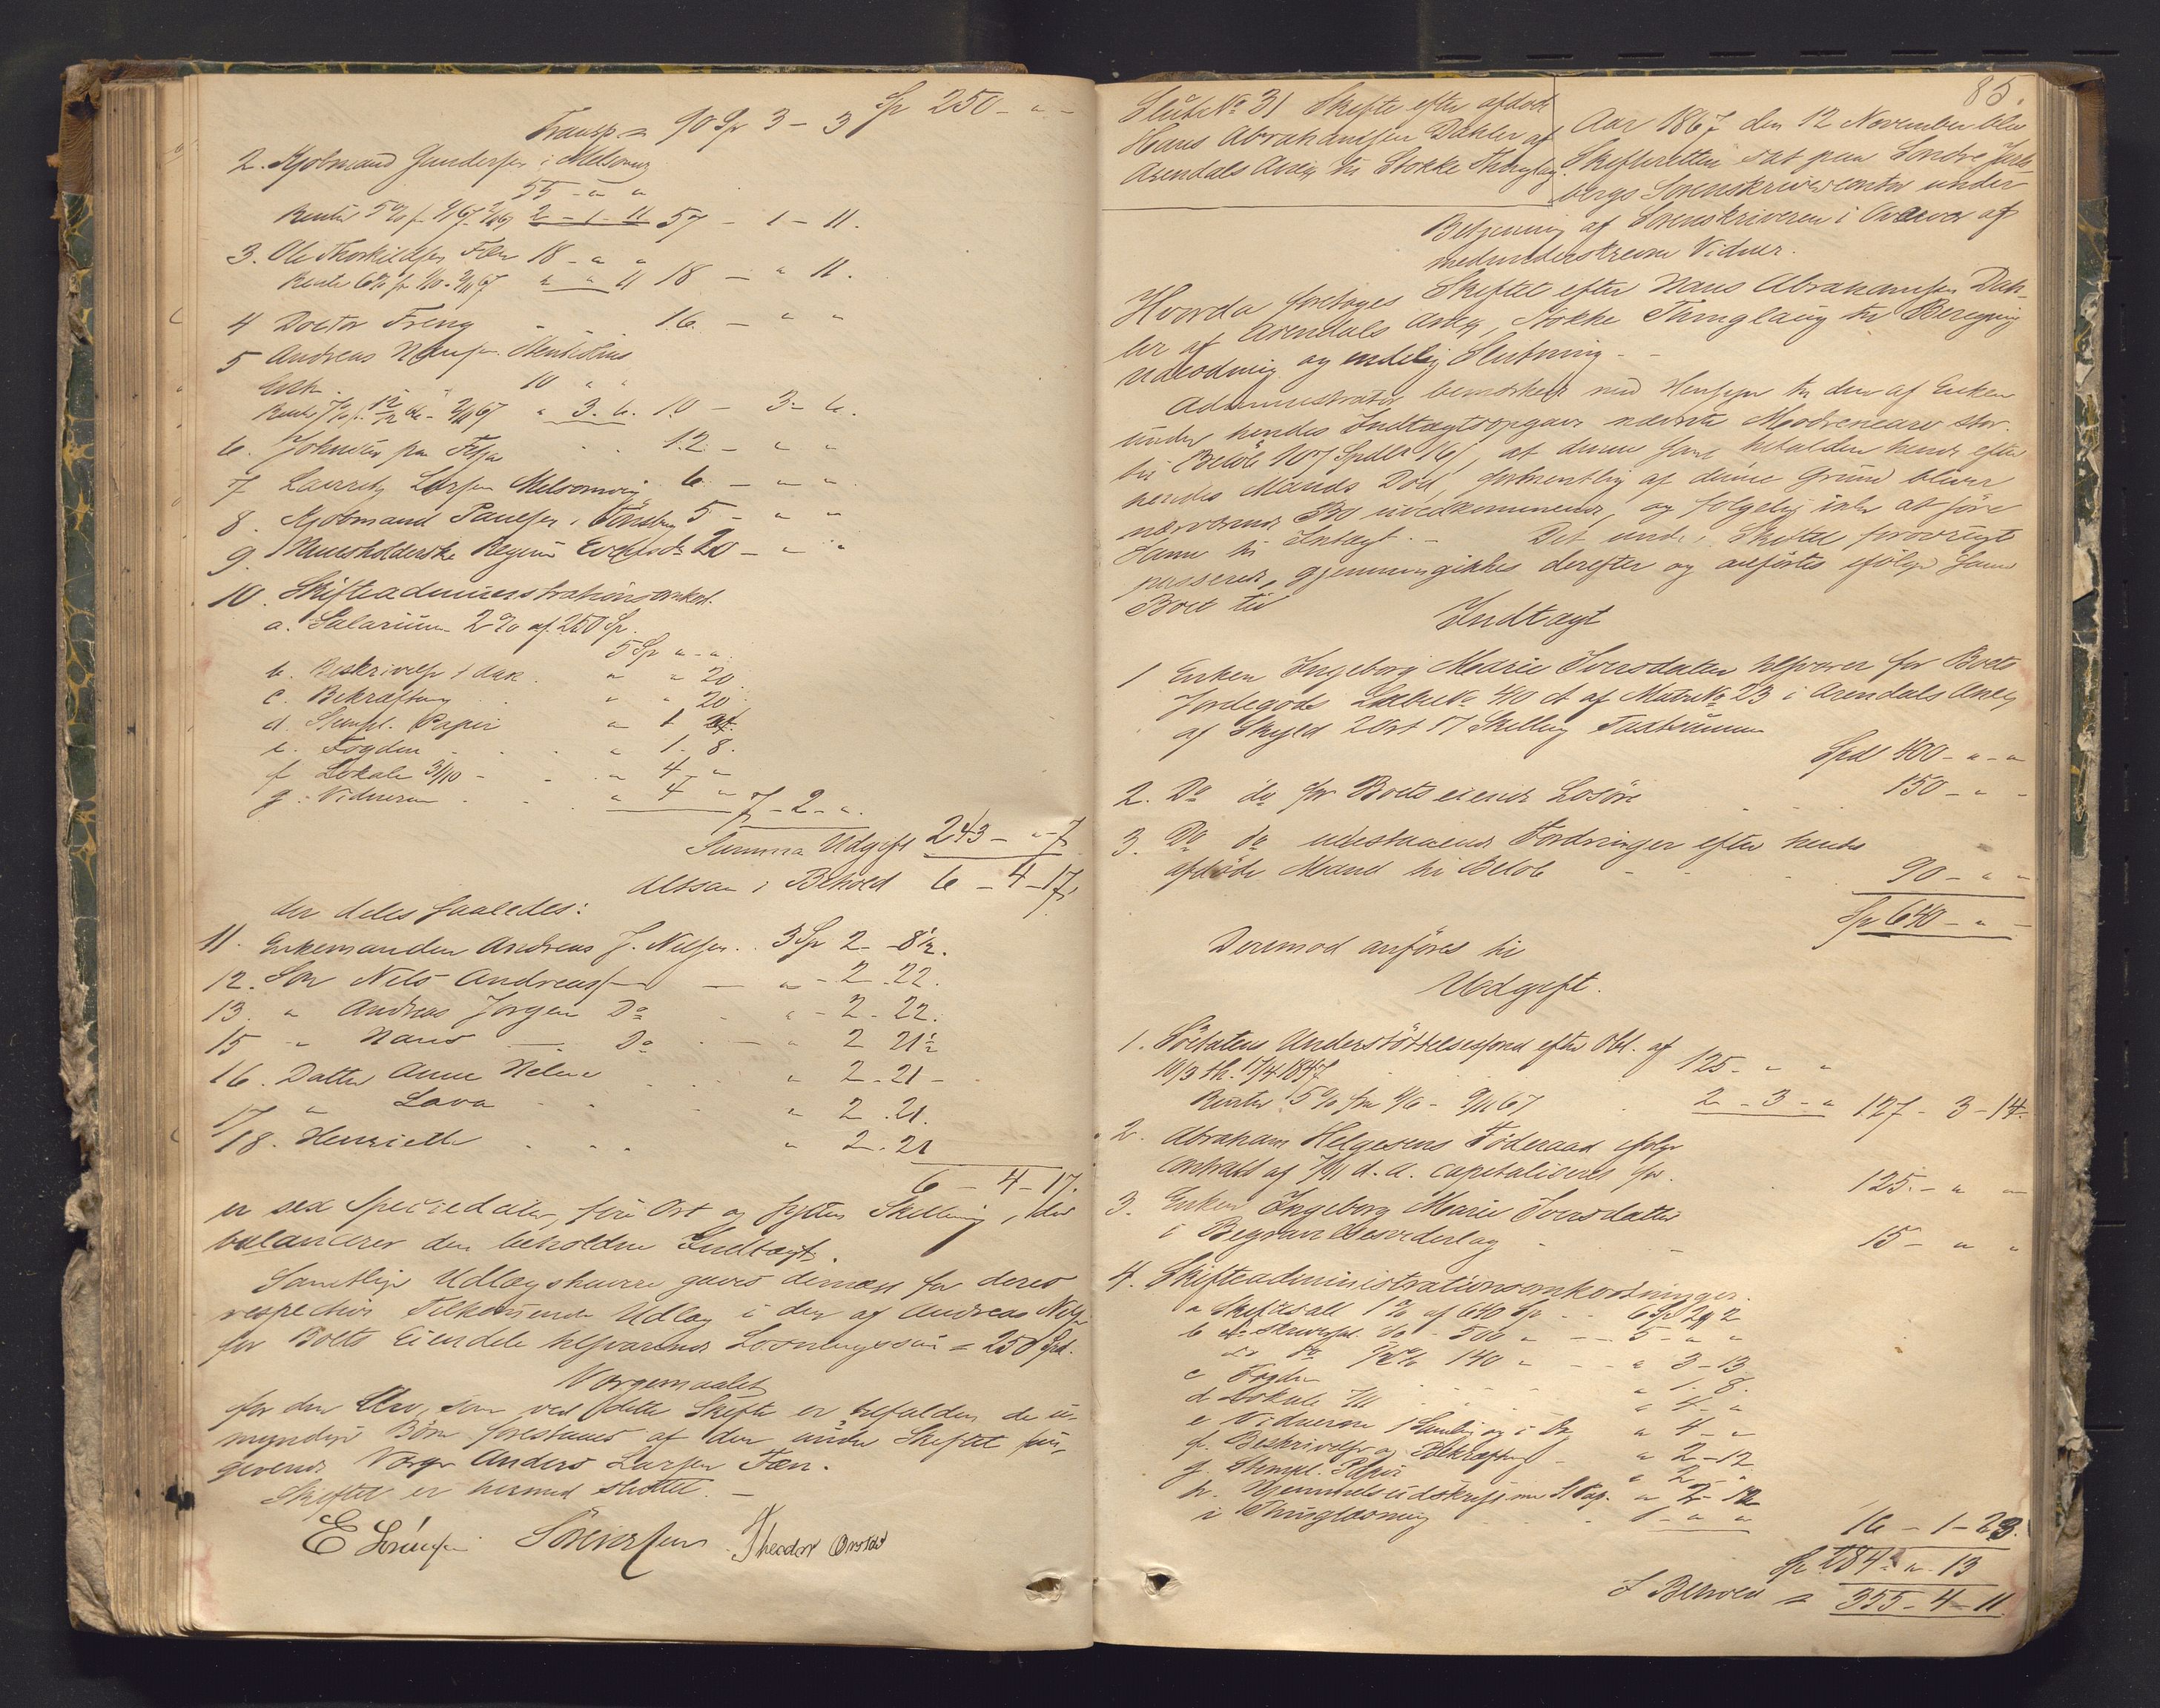 Sp 250 - " -
Transp = 90 Sp 3 - 3
2. Kjøbmand Gundersen i Melsomvig
55 - " "
Renter 5 % fr 2 - 1 - 11 57 - 1 - 11.
3. Ole Thorkildsen Fæn 18 - " "
Rente 6% fr - 9/11 67 " " 11 18 - " 11.
4 Doctor Freng 16 - " "
5 Andreas Hansen
Enke 10 " "
Rente 7% f. 12/12 66 - 9/11 67 " 3. 6. 10 - 3 - 6.
6. Johnsen paa 12 - " "
7 Laurits Larsen Melsomvig 6 - " "
8. Kjøbmand Paulsen i Tønsberg 5 - " "
9. 20 - " "
10. Skifteadministrationsomkost.
a. Salarium 2 % af 250 Sp.
5 Sp " - "
b. Beskrivelse 1 " " 20
c. Bekræftung " " 20
d. Stempl. Papir " 1
e. Fogden " 1. 8.
f Lokale 31/10 - " 4 "
g. Vidnerne " 4 " 7 - 2 - ".
Summa Udgift 243 - " - 7
Altsaa i Behold 6 - 4 - 17,
der deles saaledes:
11. Enkemanden Andreas J. Nilsen 3 Sp 2 - 8½.
12. Søn Nils Andreas " - 2. 22.
13. " Andreas Jørgen Do " - 2 - 22.
15 " Hans Do " 2 21½
16. Datter Anne Helene " 2 - 21 -
17 " Lava " 2. 21.
18. Henriette " 2. 21
6 - 4 - 17.
er sex Speciedaler, fire Ort og sytten Skilling, der
balancerer den beholdne Indtægt.
Samtlige Udlægshavere gaves dernæst for deres
respective Tilkommende Udlæg i den af Andreas Nilsen
for Boets Eiendele tilsvarende Løsningssum = 250 Spd.
Vergemaalet
for den Arv, som ved dette Skifte er tilfalden de u-
myndige Børn forestaaes af den under Skiftet fun-
gerende Verge Anders Larsen Fæn.
Skiftet er hermed sluttet. -
E Sørensen Theodor
85.
Slutn No 31 Skifte efter afdøde
Hans Abrahamsen Dahler af
Arendals Aneg til Stokke Thinglag.
Aar 1867 den 12 November blev
Skifteretten sat paa Søndre Jarls-
bergs Sorenskrivercontor under
Betjening af Sorenskriveren i Overvær af
medunderskrevne Vidner.
Hvorda foretoges Skiftet efter Hans Abrahamsen Dah-
ler af Arendals Aneg, Stokke Thinglaug til Beregning
udlodning og endelig Slutning. -
Administrator bemærkede med Hensyn til den af Enken
under hendes Indtægtsopgave nævnte Mødrenearv stor.
til Beløb 107 Spdlr 16 s, at denne hende efter
hendes Mands Død, formentlig af denne Grund bliver
nærværende Bo uvedkommende, og følgelig ikke at føre
samme til Indtægt. - Det under Skiftet forøvrigt
passerede gjennemgikkes derefter og anførtes ifølge samme
Boet til
Indtægt
1 Enken Ingeborg Marie Iversdatter tilsvarer for Boets
Jordegods Løbe No 40 d af Matr No 23 i Arendals Aneg
af Skyld 2 Ort 17 Skilling Taxtsummen
Spd 400 - " - "
2. Do do for Boets eiende Løsøre 150 - " -
3. Do do udestaaende Fordringer efter hendes
afdøde Mand til Beløb 90 - " -
Sp 640 - " -
Derimod anføres til
Udgift.
1. Understøttelsesfond efter Obl. af
10/3 th. 17/4 1847 125 - " "
Renter 5 % fra - 9/11 67 2 - 3 - " 127 - 3 - 14.
2. Abraham Helgesens Føderaad ifølge
contract af d. a. capitaliseret for 125. - " "
3. Enken Ingeborg Marie Iversdatter
i Begravelsesvederlag 15 - " "
4. Skifteadministrationsomkostninger.
a 1 % af 640 Sp 6 Sp 2
b do - 500 " - 5 - " "
do 140 " - " 3 - 13
c Fogden " 1. 8.
d Lokale " 4 - "
e Vidnerne 1 " 4 - "
f. Beskrivelse og Bekræftning " 2 - 12
g. Stempl. Papir " 2 - "
h. Hjemmelsudskrift med St Pap. " 2 - 12
i Thinglæsning 1 - " " 16 - 1 - 23.
Sp 284 " - 13
I Behold = 355 - 4 - 11